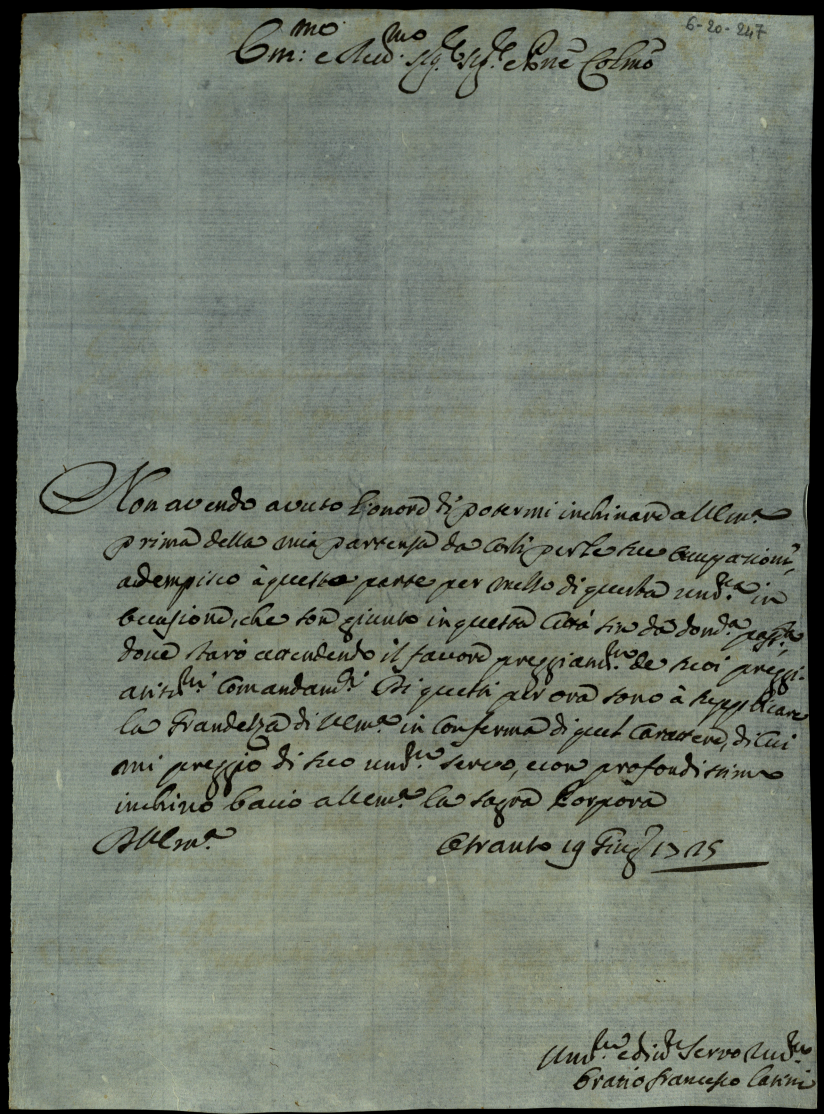 6-20-247
Em:mo e Rev:mo Sig.re Sig.re e Pne Colmo
Non avendo avuto l'onore di potermi inchinare a V Em.a
prima della mia partenza da costì per le sue occupazioni,
adempisco à questa parte per mezzo di questa um.ma in
occasione, che son giunto in questa Città sin da dom.ca pass.ta
dove starò attendendo il favore preggiand.mo de suoi preggi-
atis.mi comandam.ti Ed questi per ora sono à supplicare
la Grandezza di V Em.a in conferma di quel carattere, di cui
mi preggio di suo um.mo servo, e con profondissimo
inchino bacio a V Em.a la sagra Porpora
D V Em.a Otranto 19 Giug.o 1725
Um.mo e di.mo Servo Ob.mo
Oratio Francesco